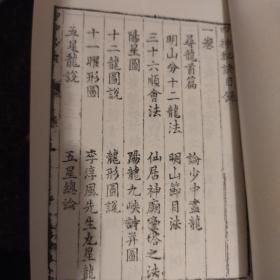 一卷
尋龍首篇
論少中盡龍
明山分十二龍法
明山節目法
三十六順會法
仙居神廟靈塔之法
陽星圖
陽龍九峽詩并圖
十二龍圖說
龍形圖說
十一曜形圖
李淳風先生九星龍
五星龍說
五星總論